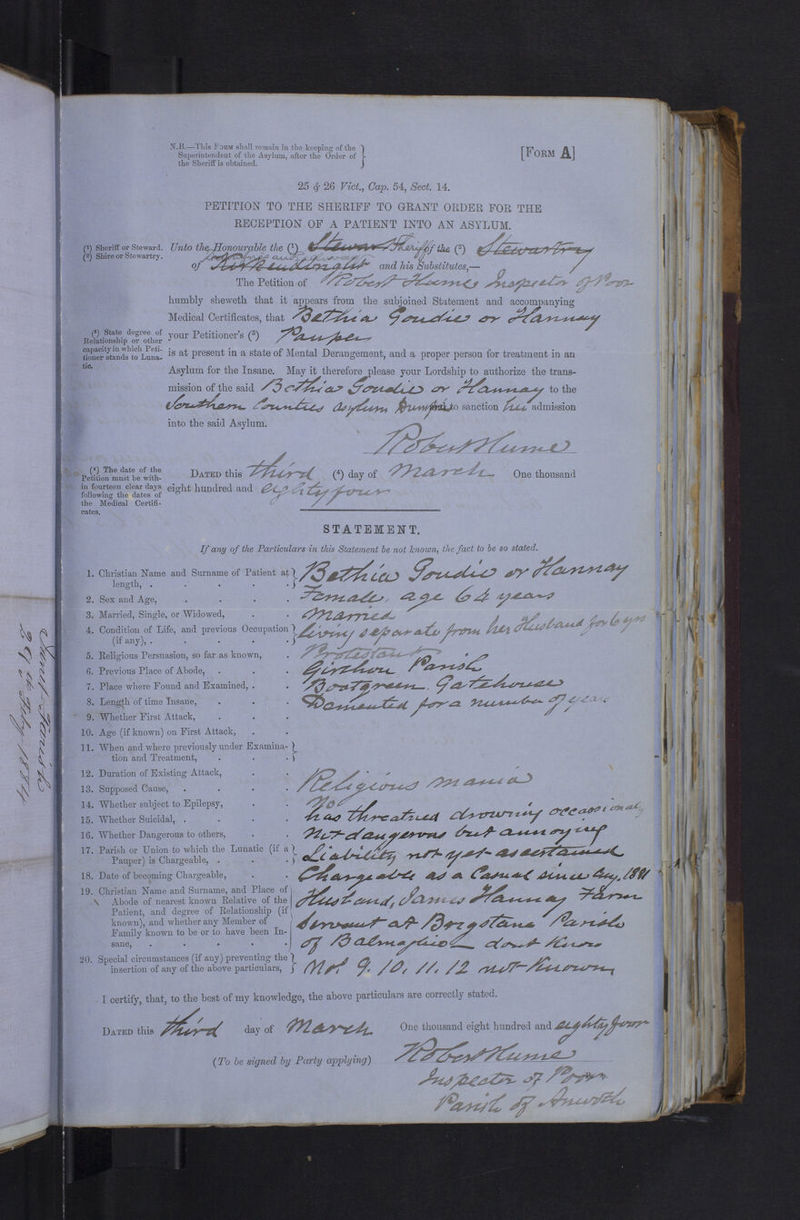 N.B.—This FORM shall remain in the keeping of the
Superintendent of the Asylum, after the Order of
the Sheriff is obtained.
[FORM A]
25 & 26 Vict., Cap. 54, Sect. 14.
PETITION TO THE SHERIFF TO GRANT ORDER FOR THE
RECEPTION OF A PATIENT INTO AN ASYLUM.
(1) Sheriff or Steward.
(2) Shire or Stewartry.
Unto the Honourable the (1) Sheriff of the (2) Stewartry
of Kirkcudbright and his Substitutes,—
The Petition of Robert Hume Inspector of Poor
humbly sheweth that it appears from the subjoined Statement and accompanying
Medical Certificates, that Bethia Goudie or Hannay
(3) State degree of
Relationship or other
capacity in which Peti-
tioner stands to Luna-
tic.
your Petitioner's (3) Pauper
is at present in a state of Mental Derangement, and a proper person for treatment in an
Asylum for the Insane. May it therefore please your Lordship to authorize the trans-
mission of the said Bethia Goudie or Hannay to the
Southern Counties Asylum Dumfries to sanction her admission
into the said Asylum.
Robert Hume
(4) The date of the
Petition must be with-
in fourteen clear days
following the dates of
the Medical Certifi-
cates.
DATED this third (4) day of March One thousand
eight hundred and eighty four
STATEMENT.
If any of the Particulars in this Statement be not known, the fact to be so stated.
1. Christian Name and Surname of Patient at length, . Bethia Goudie or Hannay
2. Sex and Age, Female, age 64 years
3. Married, Single, or Widowed, Married
4. Condition of Life, and previous Occupation (if any), . living separate from her Husband for 6 yrs
5. Religious Persuasion, so far as known, Protestant
6. Previous Place of Abode, Girthon Parish
7. Place where Found and Examined, . Boatgreen Gatehouse
8. Length of time Insane, Demented for a number of years
9. Whether First Attack,
10. Age (if known) on First Attack,
11. When and where previously under Examina-
tion and Treatment,
12. Duration of Existing Attack,
13. Supposed Cause, Religious mania
14. Whether subject to Epilepsy, No
15. Whether Suicidal, . has threatned drowning occasionaly
16. Whether Dangerous to others, Not dangerous but annoying
17. Parish or Union to which the Lunatic (if a
Pauper) is Chargeable, . Liability not yet ascertained
18. Date of becoming Chargeable, Chargeable as a Casual since 1881
19. Christian Name and Surname, and Place of
Abode of nearest known Relative of the
Patient, and degree of Relationship (if
known), and whether any Member of
Family known to be or to have been In-
sane,
Husband, James Hannay Farm
Servant at Parish
of Balmaghie dont know
20. Special circumstances (if any) preventing the
insertion of any of the above particulars, Nos 9. 10. 11. 12 not known
I certify, that, to the best of my knowledge, the above particulars are correctly stated.
DATED this third day of March One thousand eight hundred and eighty four
(To be signed by Party applying) Robert Hume
Inspector of Poor
Parish of Anwoth